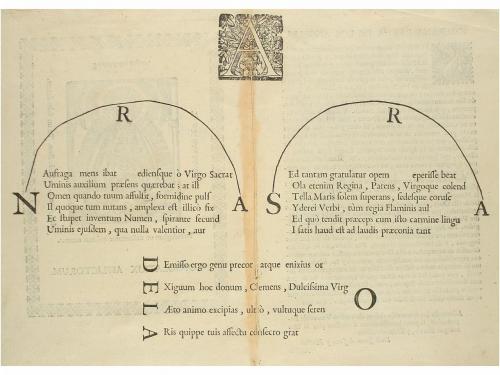 A
R
R
N
A
S
A
Aufraga mens ibat ediensque ò Virgo Sacrat
Uminis auxilium præsens quærebat; at ill
Omen quando tuum assulsit, formidine puls
Il quoque tum nutans, amplexa est illico fix
Ec stupet inventum Numen, spirante secund
Uminis ejusdem, qua nulla valentior, aur
Ed tantam gratulatur opem eperisse beat
Ola etenim Regina, Parens, Virgoque colend
Tella Maris solem superans, sedesque corusc
Yderei Verbi, tùm regia Flaminis aul
Ed quò tendit præceps cum isto carmine lingu
I satis haud est ad laudis præconia tant
D
E
L
A
O
Emisso ergo genu precor atque enixius or
Xiguum hoc donum, Clemens, Dulcissima Virg
Æto animo excipias, ultrò, vultuque seren
Ris quippe tuis affectu consecro grat